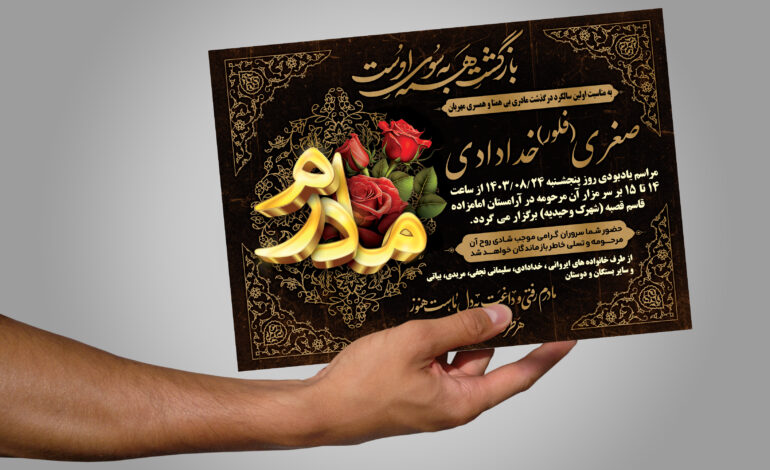 بازگشت همه به سوی اوست
به مناسبت اولین سالگرد درگذشت مادری بی همتا و همسری مهربان
صغری (فلور) خدادادی
مادرم
مراسم یادبودی روز پنجشنبه ۱۴۰۳/۰۸/۲۴ از ساعت
۱۴ تا ۱۵ بر سر مزار آن مرحومه در آرامستان امامزاده
قاسم قصبه (شهرک وحیدیه) برگزار می گردد.
حضور شما سروران گرامی موجب شادی روح آن
مرحومه و تسلی خاطر بازماندگان خواهد شد
از طرف خانواده های ایروانی، خدادادی، سلیمانی نجفی، مریدی، بیاتی
و سایر بستگان و دوستان
مادرم رفتی و داغت بر دل ماست هنوز
هر